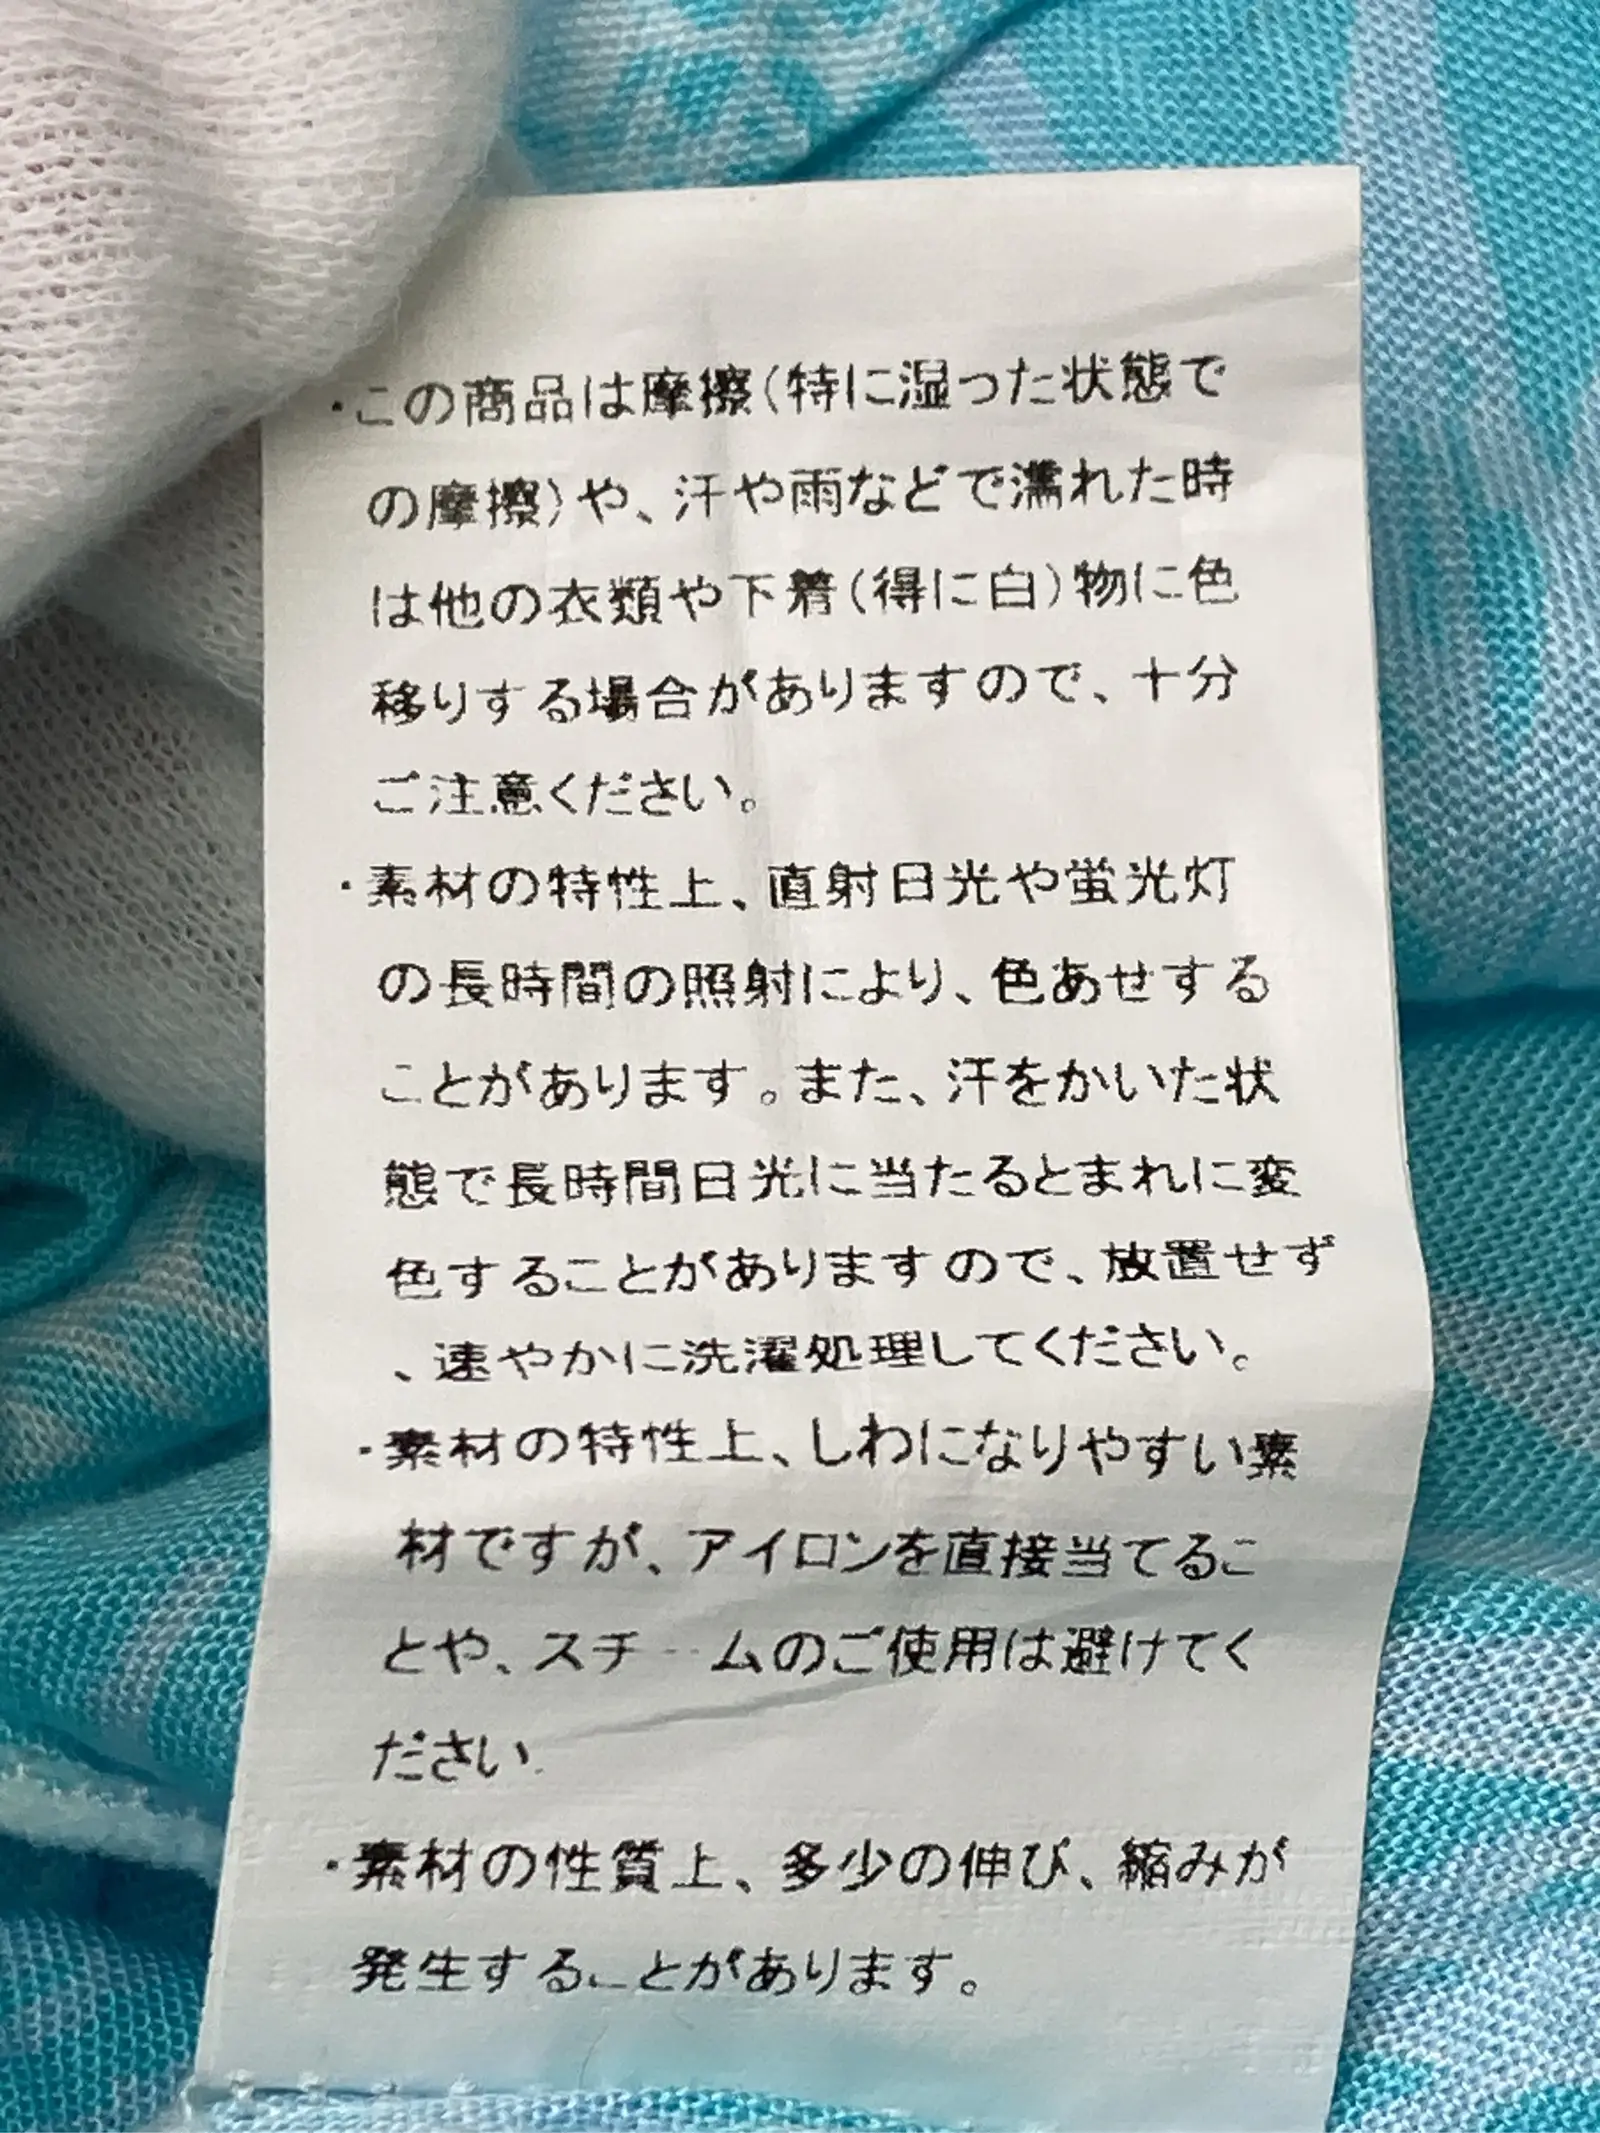 ・この商品は摩擦(特に湿った状態で
の摩擦)や、汗や雨などで濡れた時
は他の衣類や下着(得に白)物に色
移りする場合がありますので、十分
ご注意ください。
・素材の特性上、直射日光や蛍光灯
の長時間の照射により、色あせする
ことがあります。また、汗をかいた状
態で長時間日光に当たるとまれに変
色することがありますので、放置せず
、速やかに洗濯処理してください。
・素材の特性上、しわになりやすい素
材ですが、アイロンを直接当てるこ
とや、スチームのご使用は避けてく
ださい.
・素材の性質上、多少の伸び、縮みが
発生することがあります。